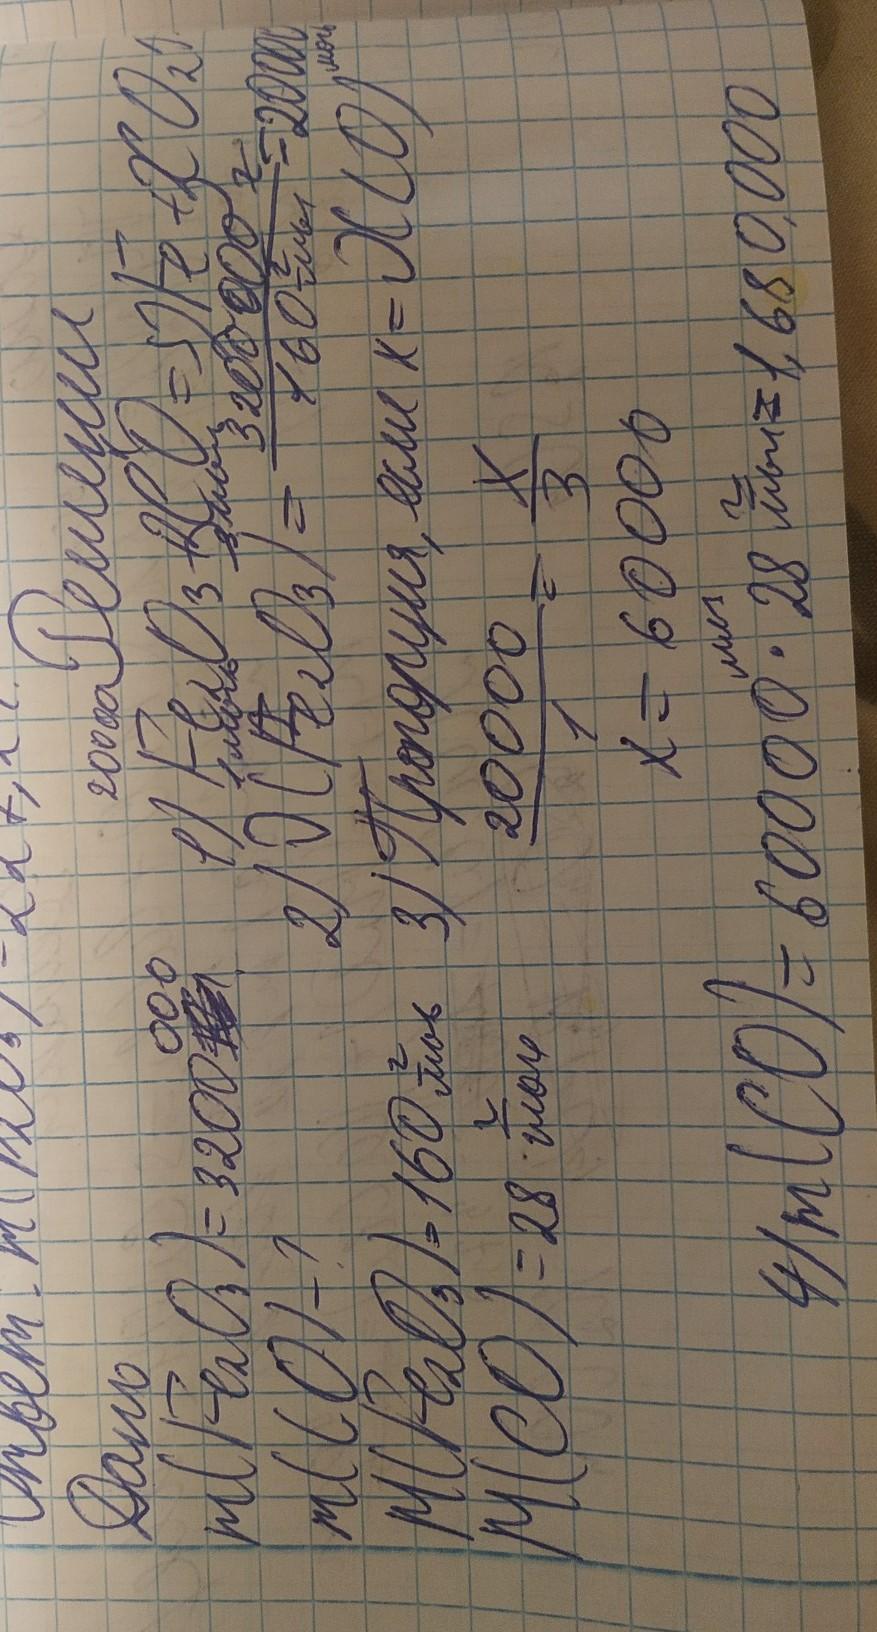 Ответ: m(
Дано
Решение
m(Fe₂O₃)=3200 000
m(CO)-?
M(Fe₂O₃)=160 г/моль
M(CO)=28 г/моль
20000
1) Fe₂O₃+3CO=2Fe+3CO₂
1моль 3моль
2) ν(Fe₂O₃)= 3200 000 г / 160 г/моль =20000 моль
3) Пропорция, если x=ν(CO)
20000/1 = x/3
x=60000
4) m(CO)=60000 моль · 28 г/моль=1,680,000